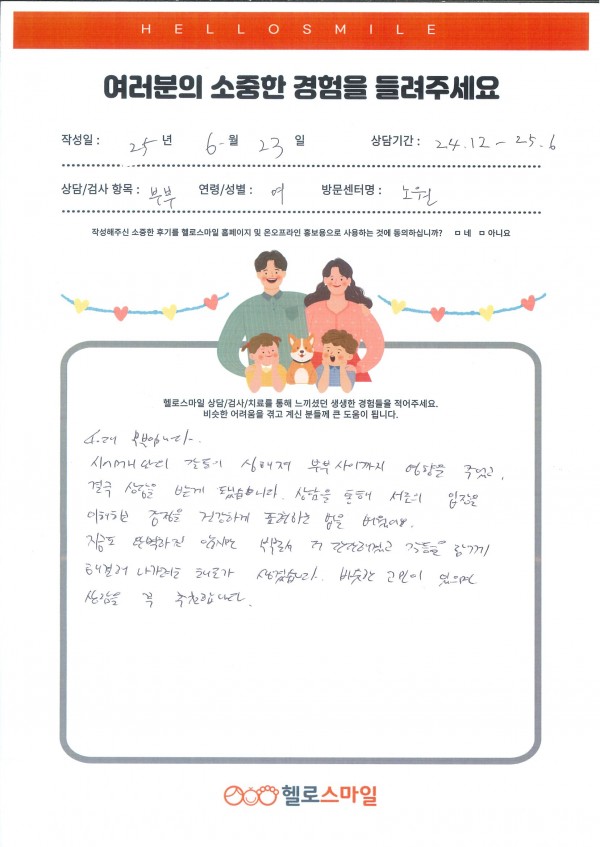 HELLOSMILE
여러분의 소중한 경험을 들려주세요
작성일 : 25 년 6 월 23 일 상담기간 : 24.12 - 25.6
상담/검사 항목 : 부부 연령/성별 : 여 방문센터명 : 노원
작성해주신 소중한 후기를 헬로스마일 홈페이지 및 온오프라인 홍보용으로 사용하는 것에 동의하십니까? ㅁ 네 ㅁ 아니요
헬로스마일 상담/검사/치료를 통해 느끼셨던 생생한 경험들을 적어주세요.
비슷한 어려움을 겪고 계신 분들께 큰 도움이 됩니다.
부부입니다.
갈등이 심해져 부부사이까지 영향을 주었고,
결국 상담을 받게 되었습니다. 상담을 통해 서로의 입장을
이해하고 감정을 건강하게 표현하는 법을 배웠어요.
지금도 완벽하진 않지만 부부로서 더 단단해졌고 갈등을 함께
해결해 나가려는 태도가 생겼습니다. 비슷한 고민이 있으면
상담을 꼭 추천합니다.
헬로스마일